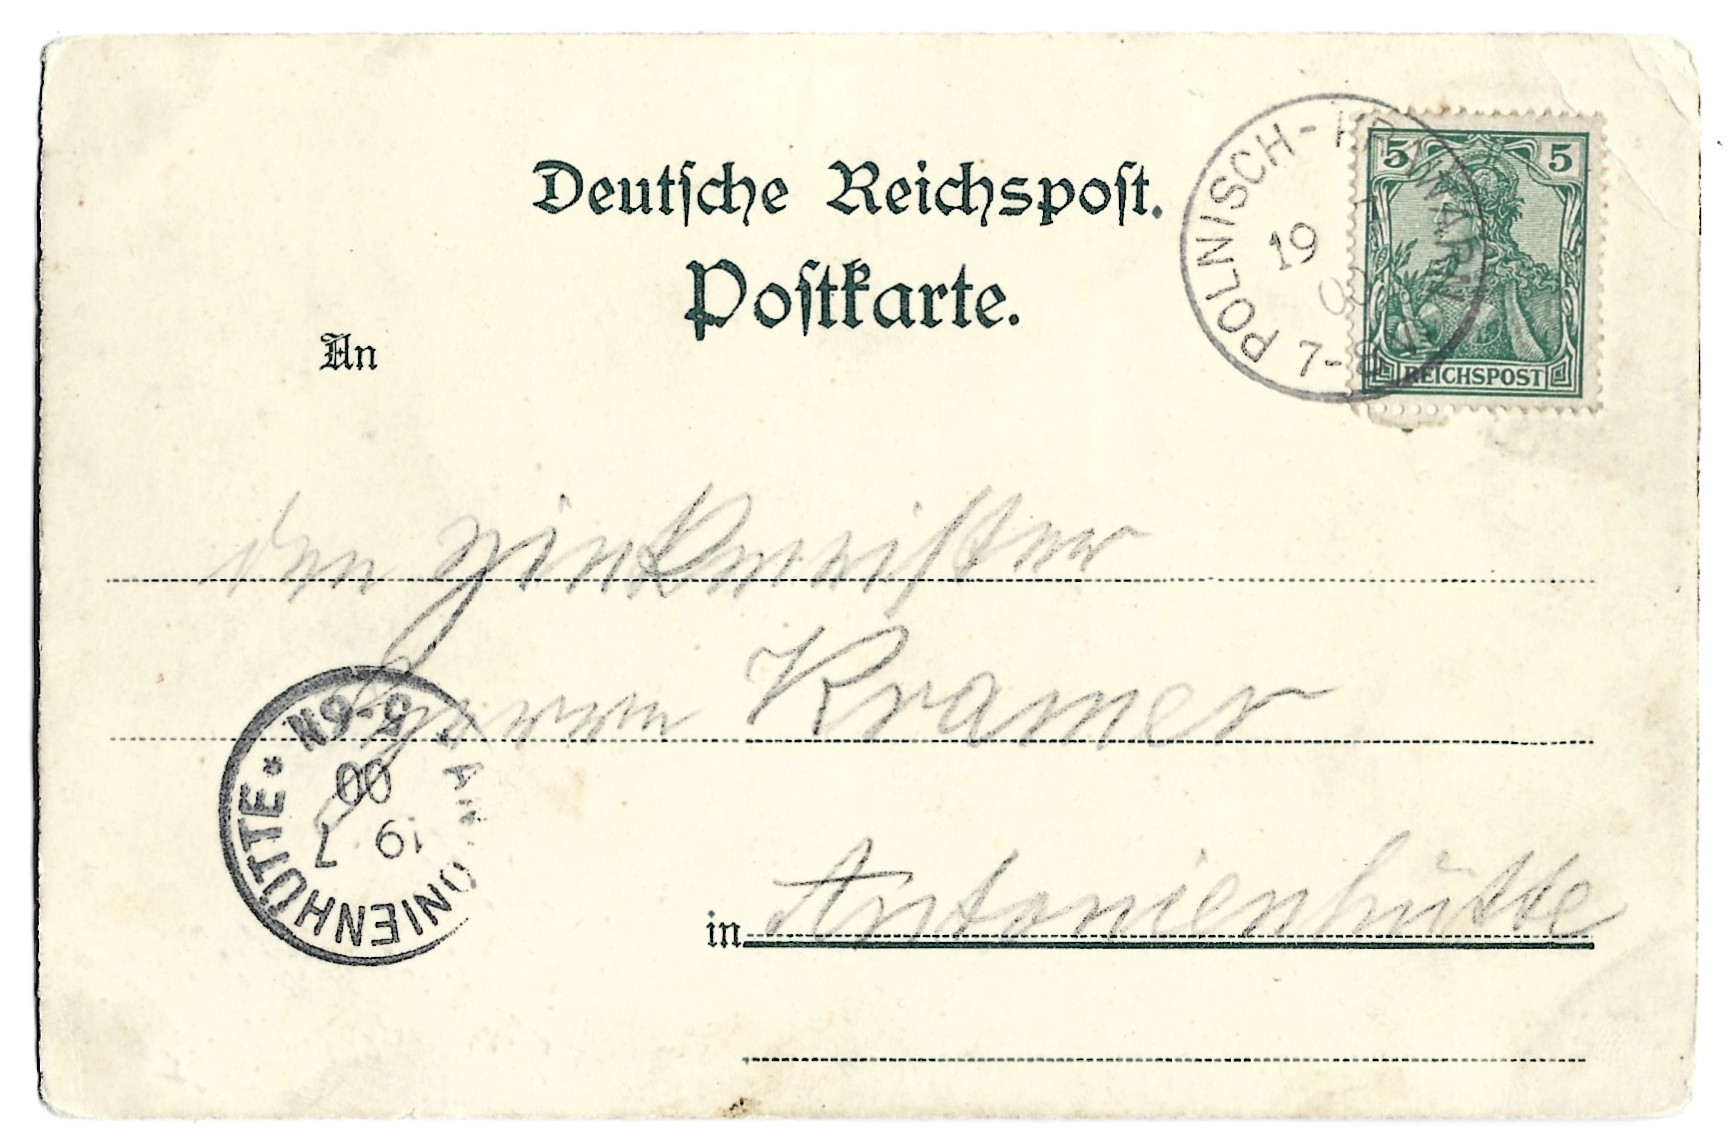 Deutsche Reichspost.
Postkarte.
An
POLNISCH-
19
7-8
5 5
REICHSPOST
den Zinkmeister
Herrn Kramer
in Antonienhütte
ANTONIENHÜTTE *
19 7
00
5-6N